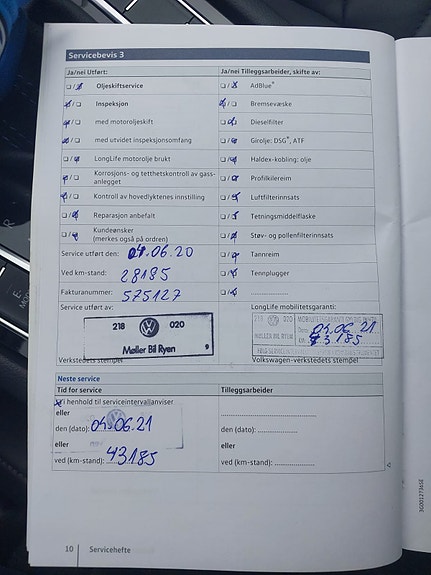 Servicebevis 3
Ja/nei Utført:
Ja/nei Tilleggsarbeider, skifte av:
Oljeskiftservice
AdBlue®
Inspeksjon
Bremsevæske
med motoroljeskift
Dieselfilter
med utvidet inspeksjonsomfang
Girolje: DSG®, ATF
LongLife motorolje brukt
Haldex-kobling: olje
Korrosjons- og tetthetskontroll av gass-
anlegget
Profilkilereim
Kontroll av hovedlyktenes innstilling
Luftfilterinnsats
Reparasjon anbefalt
Tetningsmiddelflaske
Kundeønsker
(merkes også på ordren)
Støv- og pollenfilterinnsats
Service utført den: 04.06.20
Tannreim
Ved km-stand: 28185
Tennplugger
Fakturanummer: 575127
Service utført av:
LongLife mobilitetsgaranti:
218 020
Møller Bil Ryen 9
218 020
MØLLER BIL RYEN
04.06.21
43185
Verkstedets stempel
Volkswagen-verkstedets stempel
Neste service
Tid for service
Tilleggsarbeider
i henhold til serviceintervallanviser
eller
den (dato): 04.06.21
den (dato):
eller
eller
ved (km-stand): 43185
ved (km-stand):
10 Servicehefte